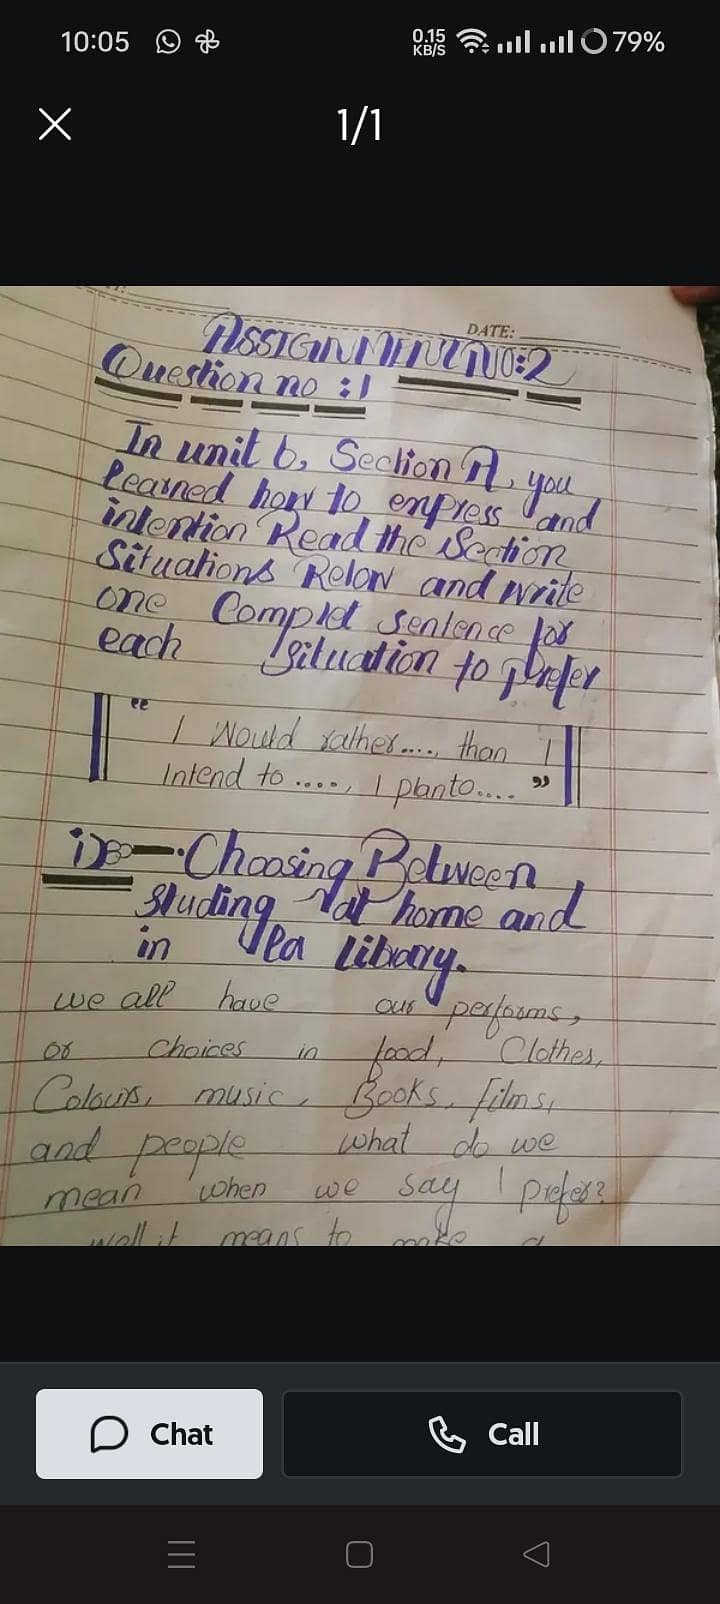 10:05
0.15 KB/S
79%
1/1
DATE:
ASSIGNMENT NO:2
Question no :1
In unit 6, Section A, you
learned how to express and
intention Read the Section
Situations Relow and write
one Complet sentence for
each situation to prefer
" I Would rather...., than I
Intend to ...., I planto.... "
i) Choosing Between
studing at home and
in a library.
we all have our performs,
or Choices in food, Clothes,
Colours, music, Books, films,
and people what do we
mean when we say I prefer?
well it means to make a
Chat
Call